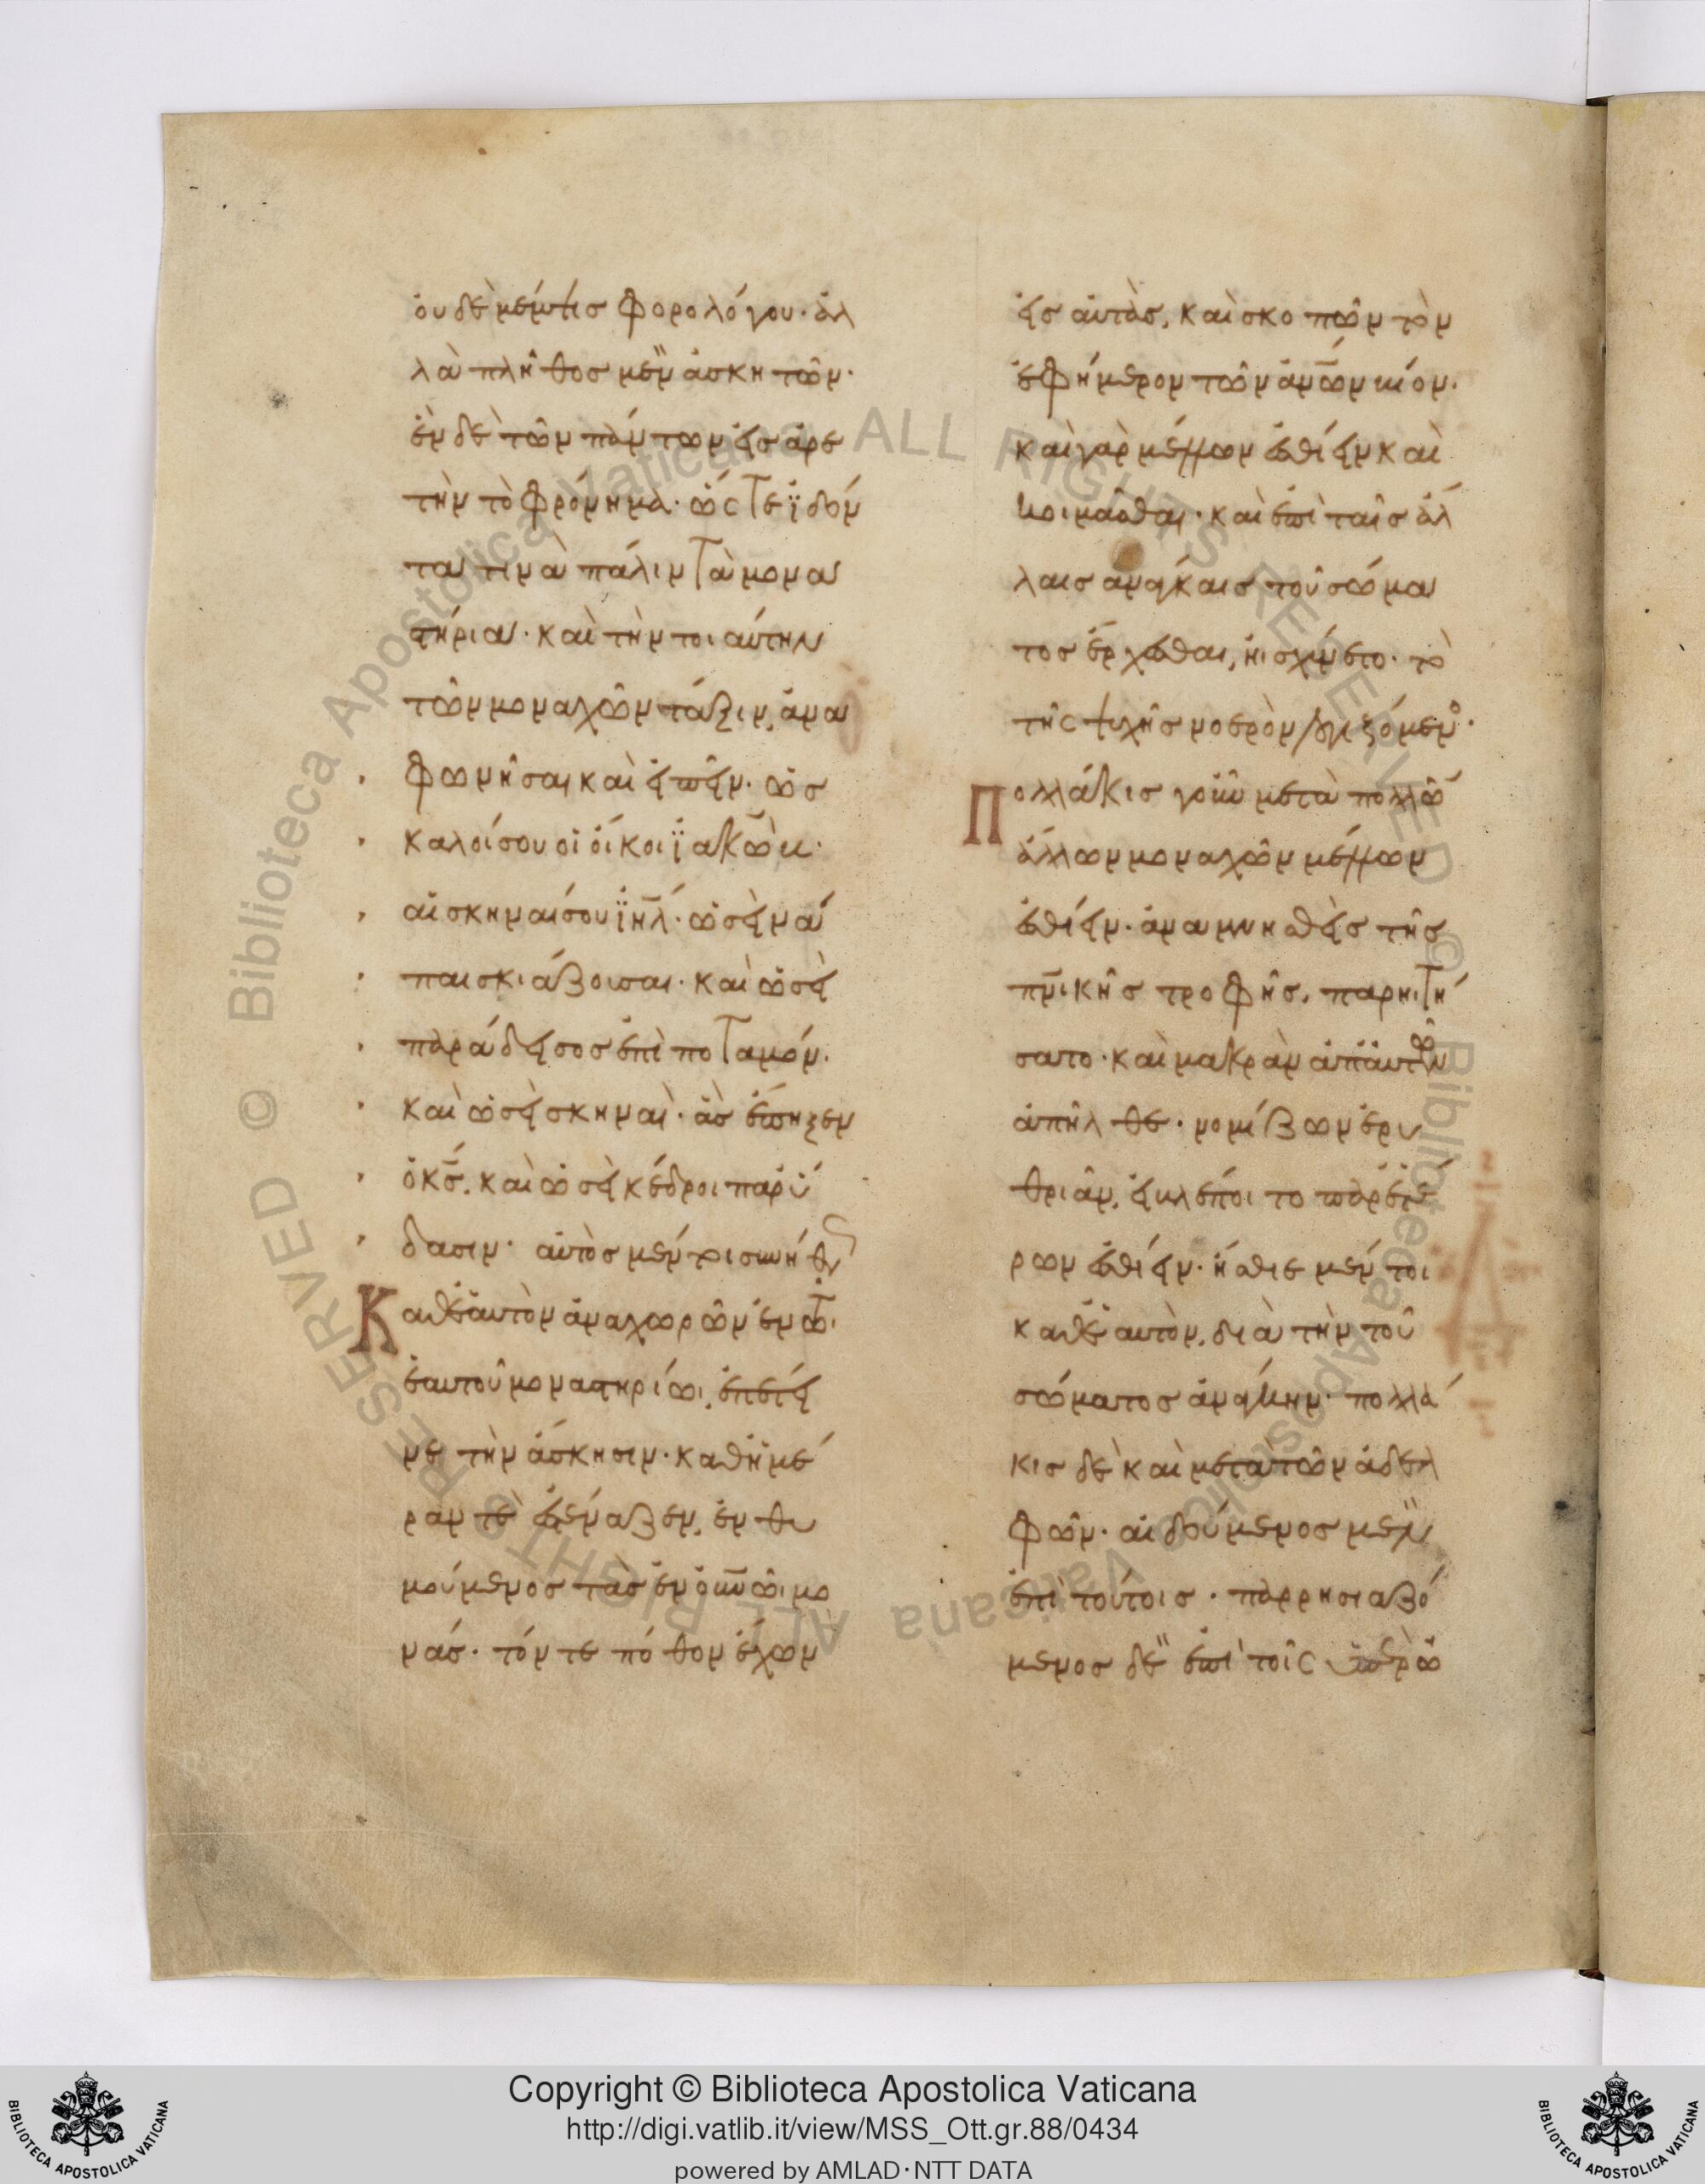 οὐδὲ μέμψις φορολόγου· ἀλ
λὰ πλῆθος μὲν ἀσκητῶν·
ἓν δὲ τῶν πάντων εἰς ἀρε
τὴν τὸ φρόνημα· ὥστε ἰδόν
τα τινὰ πάλιν τὰ μονα
στήρια· καὶ τὴν τοιαύτην
τῶν μοναχῶν τάξιν, ἀνα
φωνῆσαι καὶ εἰπεῖν· ὡς
καλοί σου οἱ οἶκοι ϊακὼβ·
αἱ σκηναί σου ϊηλ· ὡσεὶ νά
παι σκιάζουσαι· καὶ ὡσεὶ
παράδεισος ἐπὶ ποταμόν·
καὶ ὡσεὶ σκηναὶ· ἃς ἔπηξεν
ὁ κς. καὶ ὡσεὶ κέδροι παρ ὕ
δασιν· αὐτὸς μέντοι συνήθ
Καθ ἑαυτὸν ἀναχωρῶν ἐν τῶι
ἑαυτοῦ μοναστηρίωι, ἐπέτει
νε τὴν ἄσκησιν· καθ ἡμέ
ραν τε ἐστέναζεν, ἐνθυ
μούμενος τὰς ἐν οὐνῶι μο
νάς· τόν τε πόθον ἔχων
εἰς αὐτὰς, καὶ σκοπῶν τὸν
ἐφήμερον τῶν ἀνων βίον·
καὶ γὰρ μέλλων ἐσθίειν καὶ
κοιμᾶσθαι· καὶ ἐπὶ ταῖς ἄλ
λαις ἀνάγκαις τοῦ σώμα
τος ἔρχεσθαι, ἠισχύνετο· τὸ
τῆς ψυχῆς νοερὸν λογιζόμεν·
Πολλάκις γοῦν μετὰ πολλῶ
ἄλλων μοναχῶν μέλλων
ἐσθίειν· ἀναμνησθεὶς τῆς
πνικῆς τροφῆς, παρηιτή
σατο· καὶ μακρὰν ἀπ αὐτῶν
ἀπῆλθε· νομίζων ἐρυ
θριᾶν, εἰ βλέποιτο παρ ἑτέ
ρων ἐσθίειν· ἤσθιε μέντοι
καθ ἑαυτὸν, διὰ τὴν τοῦ
σώματος ἀνάγκην· πολλά
κις δὲ καὶ μετὰ τῶν ἀδελ
φῶν· αἰδούμενος μὲν
ἐπὶ τούτοις· παρρησιαζό
μενος δὲ ἐπὶ τοῖς ὑπὲρ ὠ
Copyright © Biblioteca Apostolica Vaticana
http://digi.vatlib.it/view/MSS_Ott.gr.88/0434
powered by AMLAD·NTT DATA